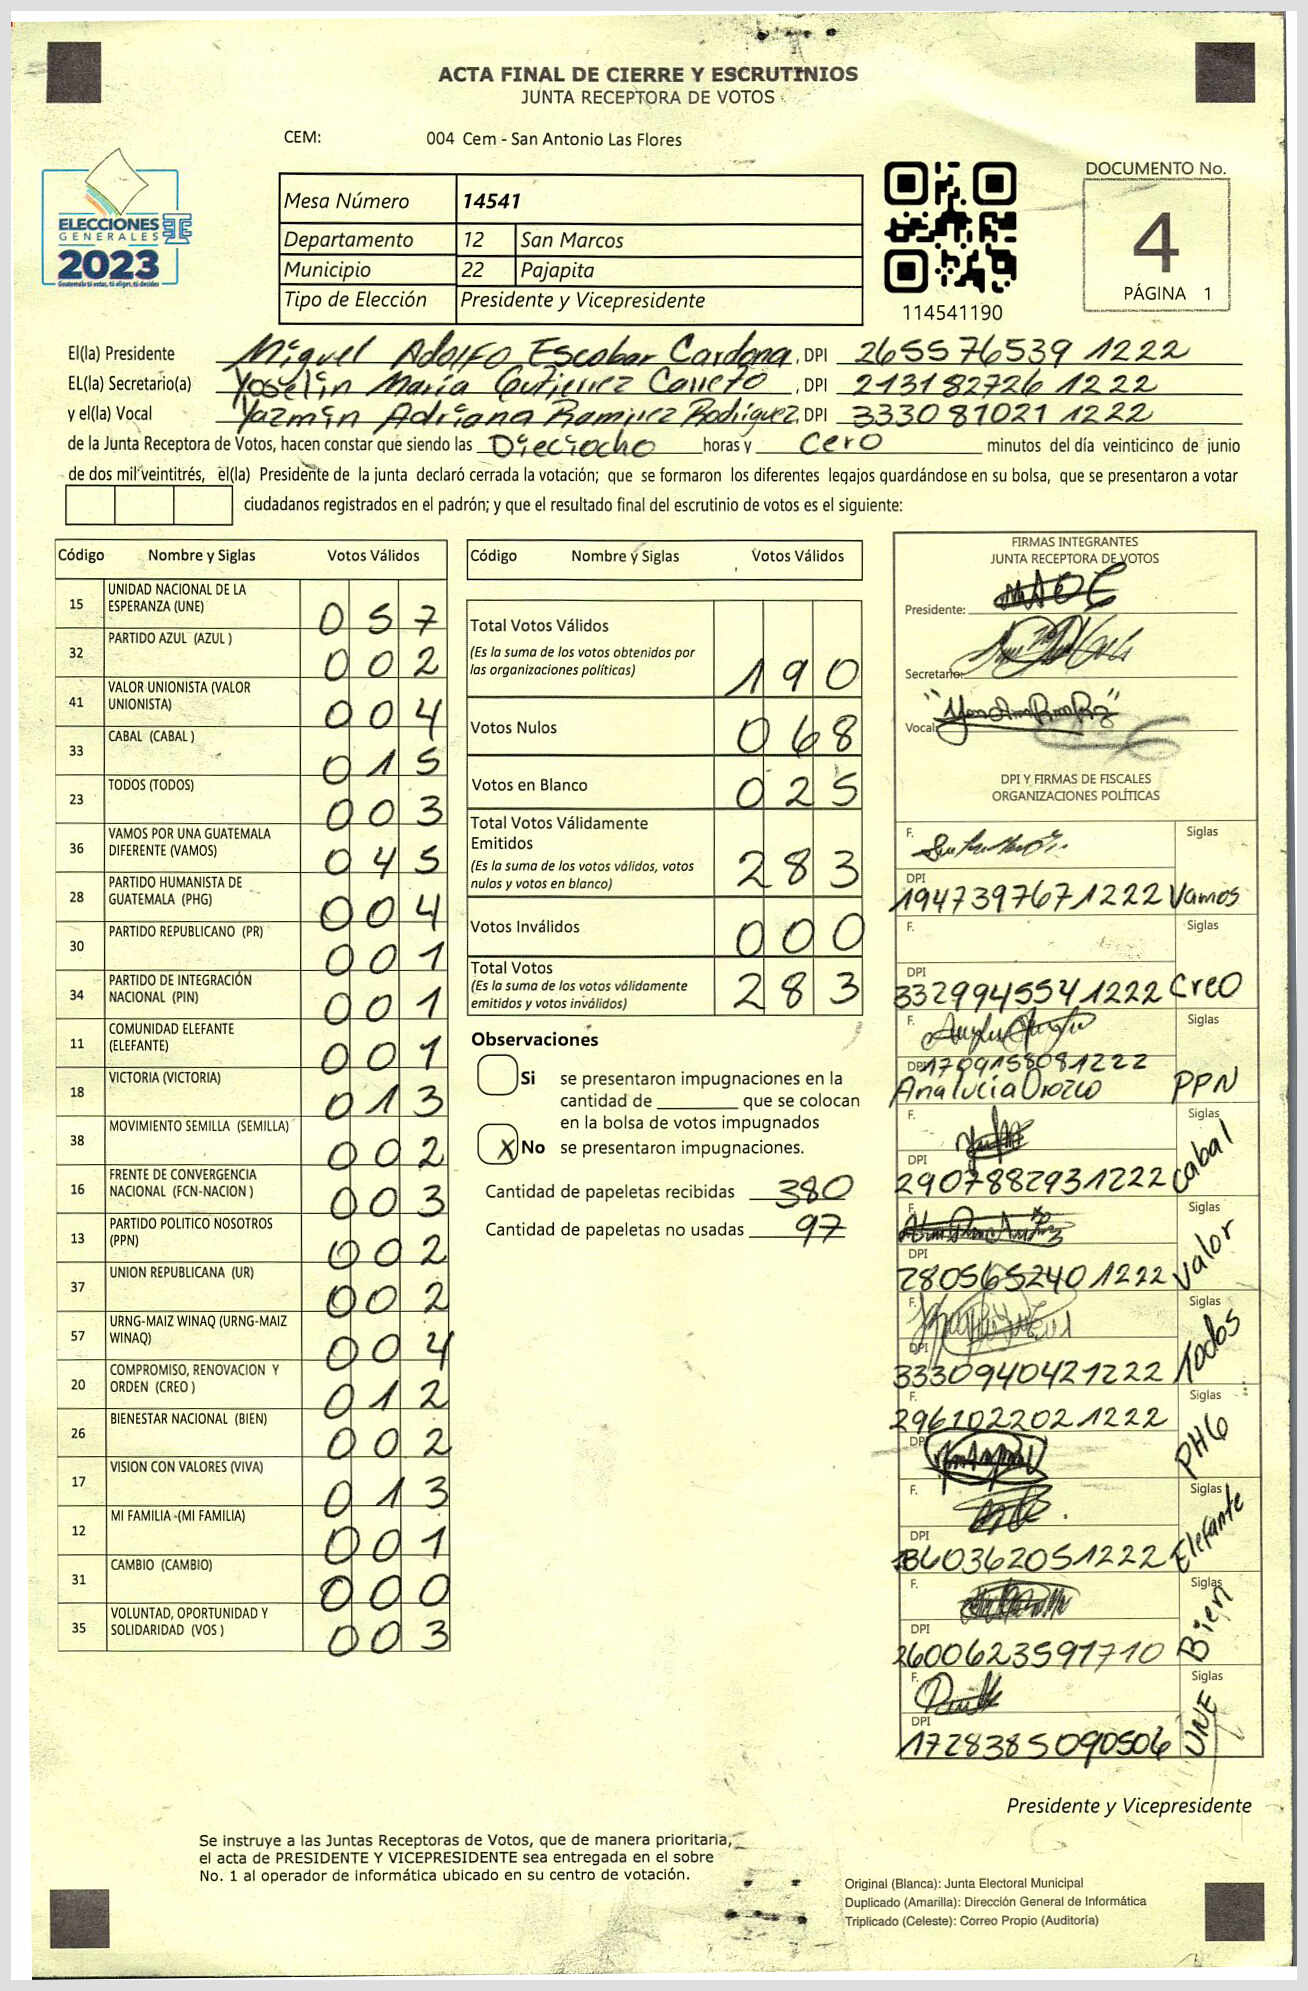 ACTA FINAL DE CIERRE Y ESCRUTINIOS
JUNTA RECEPTORA DE VOTOS
CEM: 004 Cem - San Antonio Las Flores
ELECCIONES
GENERALES
2023
Guatemala tú votas, tú eliges, tú decides
Mesa Número 14541
Departamento 12 San Marcos
Municipio 22 Pajapita
Tipo de Elección Presidente y Vicepresidente
114541190
DOCUMENTO No.
4
PÁGINA 1
El(la) Presidente Miguel Adolfo Escobar Cardona, DPI 2655 76539 1222
EL(la) Secretario(a) Yoselin María Gutierrez Carreto, DPI 213182726 1222
y el(la) Vocal Yazmín Adriana Ramirez Rodriguez, DPI 333081021 1222
de la Junta Receptora de Votos, hacen constar que siendo las Dieciocho horas y cero minutos del día veinticinco de junio
de dos mil veintitrés, el(la) Presidente de la junta declaró cerrada la votación; que se formaron los diferentes legajos guardándose en su bolsa, que se presentaron a votar
ciudadanos registrados en el padrón; y que el resultado final del escrutinio de votos es el siguiente:
Código Nombre y Siglas Votos Válidos
15 UNIDAD NACIONAL DE LA ESPERANZA (UNE) 057
32 PARTIDO AZUL (AZUL ) 002
41 VALOR UNIONISTA (VALOR UNIONISTA) 004
33 CABAL (CABAL ) 015
23 TODOS (TODOS) 003
36 VAMOS POR UNA GUATEMALA DIFERENTE (VAMOS) 045
28 PARTIDO HUMANISTA DE GUATEMALA (PHG) 004
30 PARTIDO REPUBLICANO (PR) 001
34 PARTIDO DE INTEGRACIÓN NACIONAL (PIN) 001
11 COMUNIDAD ELEFANTE (ELEFANTE) 001
18 VICTORIA (VICTORIA) 013
38 MOVIMIENTO SEMILLA (SEMILLA) 002
16 FRENTE DE CONVERGENCIA NACIONAL (FCN-NACION ) 003
13 PARTIDO POLITICO NOSOTROS (PPN) 002
37 UNION REPUBLICANA (UR) 002
57 URNG-MAIZ WINAQ (URNG-MAIZ WINAQ) 004
20 COMPROMISO, RENOVACION Y ORDEN (CREO ) 012
26 BIENESTAR NACIONAL (BIEN) 002
17 VISION CON VALORES (VIVA) 013
12 MI FAMILIA -(MI FAMILIA) 001
31 CAMBIO (CAMBIO) 000
35 VOLUNTAD, OPORTUNIDAD Y SOLIDARIDAD (VOS ) 003
Código Nombre y Siglas Votos Válidos
Total Votos Válidos 190
(Es la suma de los votos obtenidos por
las organizaciones políticas)
Votos Nulos 068
Votos en Blanco 025
Total Votos Válidamente
Emitidos 283
(Es la suma de los votos válidos, votos
nulos y votos en blanco)
Votos Inválidos 000
Total Votos 283
(Es la suma de los votos válidamente
emitidos y votos inválidos)
Observaciones
Si se presentaron impugnaciones en la
cantidad de ________ que se colocan
en la bolsa de votos impugnados
X No se presentaron impugnaciones.
Cantidad de papeletas recibidas 380
Cantidad de papeletas no usadas 97
FIRMAS INTEGRANTES
JUNTA RECEPTORA DE VOTOS
Presidente:
Secretario:
Vocal:
DPI Y FIRMAS DE FISCALES
ORGANIZACIONES POLÍTICAS
F. Siglas
DPI
1947397671222 Vamos
F. Siglas
DPI
3329945541222 Creo
F. Siglas
DPI 1709158081222
Ana lucia Orozco PPN
F. Siglas
DPI
2907882931222 Cabal
F. Siglas
DPI
2805652401222 Valor
F. Siglas
DPI
3330940421222 Todos
F. Siglas
2961022021222
DPI PHG
F. Siglas
DPI
1222 Elefante
F. Siglas
DPI
2600623591710 Bien
F. Siglas
DPI
1728385090506 UNE
Presidente y Vicepresidente
Se instruye a las Juntas Receptoras de Votos, que de manera prioritaria,
el acta de PRESIDENTE Y VICEPRESIDENTE sea entregada en el sobre
No. 1 al operador de informática ubicado en su centro de votación.
Original (Blanca): Junta Electoral Municipal
Duplicado (Amarilla): Dirección General de Informática
Triplicado (Celeste): Correo Propio (Auditoría)